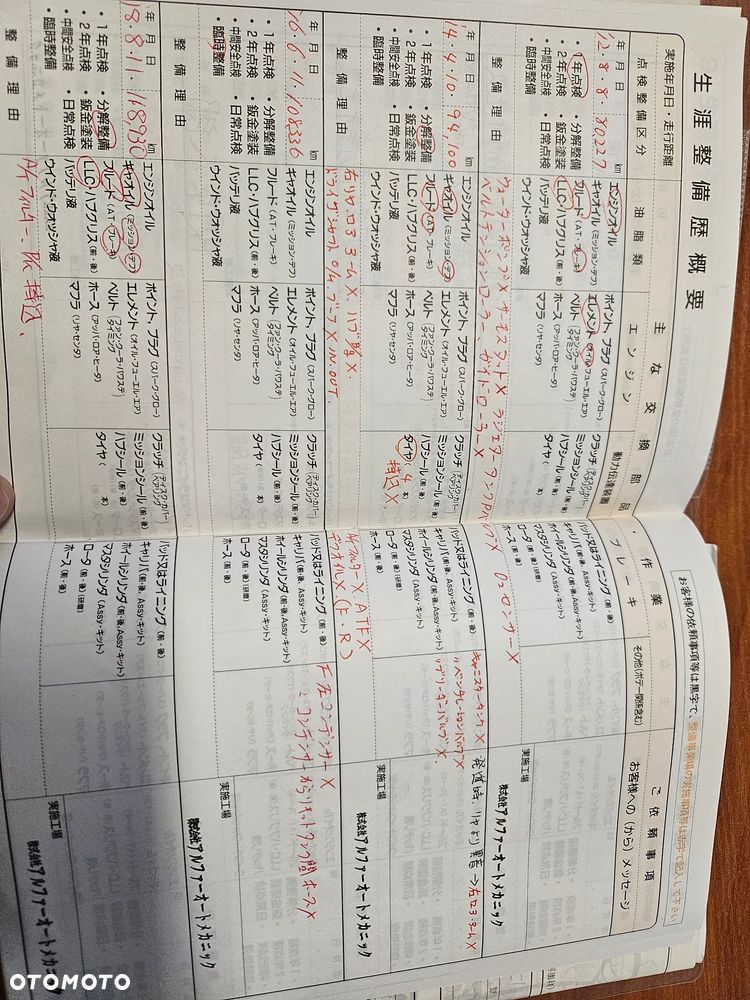 生涯整備歴概要
お客様の依頼事項等は黒字で、整備事業場の実施事項等は赤字で記入して下さい
実施年月日・走行距離
点検整備区分
主な交換部品
作業
ご依頼事項
お客様への(から)メッセージ
油脂類
エンジン
動力伝達装置
ブレーキ
その他(ボデー関係含む)
年 月 日 km
12・8・8・80227
・1年点検 ・分解整備
・2年点検 ・鈑金塗装
・中間安全点検 ・日常点検
・臨時整備
エンジンオイル
ギヤオイル(ミッション・デフ)
フルード(AT・ブレーキ)
LLC・ハブグリス(前・後)
バッテリ液
ウインド・ウォッシャ液
ポイント、プラグ(スパーク・グロー)
エレメント(オイル・フューエル・エア)
ベルト(ファン・クーラ・パワステ タイミング)
ホース(アッパ・ロア・ヒータ)
マフラ(リヤ・センタ)
クラッチ(ディスク・カバー ベアリング)
ミッションシール(前・後)
ハブシール(前・後)
タイヤ( 本)
パッド又はライニング(前・後)
キャリパ(前・後、Assy・キット)
ホイールシリンダ(前・後、Assy・キット)
マスタシリンダ(Assy・キット)
ロータ(前・後)(研磨)
ホース(前・後)
整備理由
ウォーターポンプX サーモスタットX ラジエータータンクPAイプX O2センサーX
ベルトテンションローラー ガイドローラーX
実施工場
株式会社アルファーオートメカニック
年 月 日 km
14・4・10・94,100
・1年点検 ・分解整備
・2年点検 ・鈑金塗装
・中間安全点検 ・日常点検
・臨時整備
エンジンオイル
ギヤオイル(ミッション・デフ)
フルード(AT・ブレーキ)
LLC・ハブグリス(前・後)
バッテリ液
ウインド・ウォッシャ液
ポイント、プラグ(スパーク・グロー)
エレメント(オイル・フューエル・エア)
ベルト(ファン・クーラ・パワステ タイミング)
ホース(アッパ・ロア・ヒータ)
マフラ(リヤ・センタ)
クラッチ(ディスク・カバー ベアリング)
ミッションシール(前・後)
ハブシール(前・後)
タイヤ( 4 本)
持込X
パッド又はライニング(前・後)
キャリパ(前・後、Assy・キット)
ホイールシリンダ(前・後、Assy・キット)
マスタシリンダ(Assy・キット)
ロータ(前・後)(研磨)
ホース(前・後)
キャニスタータンクX
〃ベンチレーションバルブX
〃ブリーダーバルブX
発進時、リヤより異音→左ロアームX
整備理由
右リヤ、ロアアームX ハブ廻X
ドライブシャフト O/H ブーツX IN.OUT.
エアフィルターX ATFX
デフオイルX (F・R)
実施工場
株式会社アルファーオートメカニック
年 月 日 km
16・6・11・108336
・1年点検 ・分解整備
・2年点検 ・鈑金塗装
・中間安全点検 ・日常点検
・臨時整備
エンジンオイル
ギヤオイル(ミッション・デフ)
フルード(AT・ブレーキ)
LLC・ハブグリス(前・後)
バッテリ液
ウインド・ウォッシャ液
ポイント、プラグ(スパーク・グロー)
エレメント(オイル・フューエル・エア)
ベルト(ファン・クーラ・パワステ タイミング)
ホース(アッパ・ロア・ヒータ)
マフラ(リヤ・センタ)
クラッチ(ディスク・カバー ベアリング)
ミッションシール(前・後)
ハブシール(前・後)
タイヤ( 本)
パッド又はライニング(前・後)
キャリパ(前・後、Assy・キット)
ホイールシリンダ(前・後、Assy・キット)
マスタシリンダ(Assy・キット)
ロータ(前・後)(研磨)
ホース(前・後)
F 左コンデンサーX
コンデンサからリキッドタンク間ホースX
整備理由
実施工場
株式会社アルファーオートメカニック
年 月 日 km
18.8.11. 118930
・1年点検 ・分解整備
・2年点検 ・鈑金塗装
・中間安全点検 ・日常点検
・臨時整備
エンジンオイル
ギヤオイル(ミッション・デフ)
フルード(AT・ブレーキ)
LLC・ハブグリス(前・後)
バッテリ液
ウインド・ウォッシャ液
ポイント、プラグ(スパーク・グロー)
エレメント(オイル・フューエル・エア)
ベルト(ファン・クーラ・パワステ タイミング)
ホース(アッパ・ロア・ヒータ)
マフラ(リヤ・センタ)
クラッチ(ディスク・カバー ベアリング)
ミッションシール(前・後)
ハブシール(前・後)
タイヤ( 本)
パッド又はライニング(前・後)
キャリパ(前・後、Assy・キット)
ホイールシリンダ(前・後、Assy・キット)
マスタシリンダ(Assy・キット)
ロータ(前・後)(研磨)
ホース(前・後)
整備理由
持込、
実施工場
株式会社アルファーオートメカニック
OTOMOTO